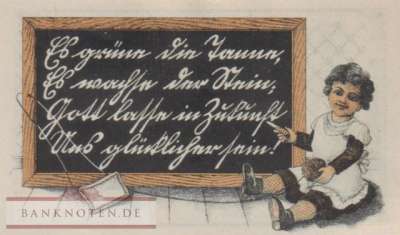 Es grüne die Tanne,
Es wachse der Stein,
Gott lasse in Zukunft
Uns glücklicher sein!
BANKNOTEN.DE